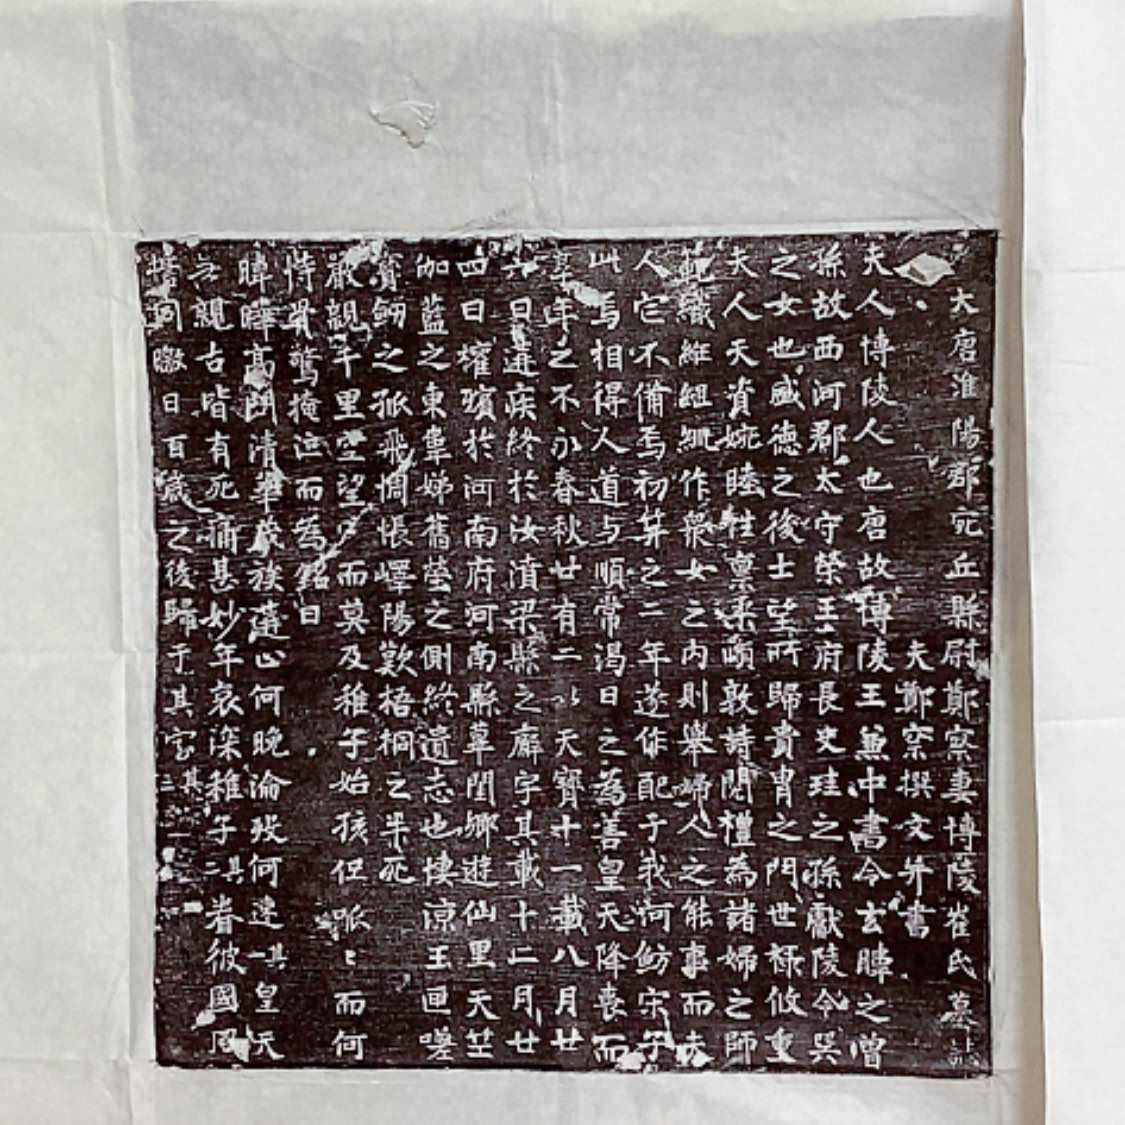 大唐淮陽郡宛丘縣尉鄭宷妻博陵崔氏墓誌
夫鄭宷撰文并書
夫人博陵人也唐故博陵王兼中書令玄暐之曾
孫故西河郡太守榮王府長史珪之孫獻陵令巽
之女也盛德之後士望所歸貴胄之門世祿攸重
夫人天資婉睦性禀柔頤敦詩閱禮為諸婦之師
範織維組紃作衆女之內則舉婦人之能事而夫
人它不備焉初笄之二年遂作配于我河魴宋子
此焉相得人道与順常渴日之為善皇天降喪而
年之不永春秋廿有二以天寶十一載八月廿
六日遘疾終於汝濆梁縣之廨宇其載十二月廿
四日權殯於河南府河南縣䓍閏鄉遊仙里天竺
伽藍之東韋娣舊塋之側終遺志也悽涼玉匣嗟
寶劒之孤飛惆悵嶧陽歎梧桐之半死
嚴親千里空望而莫及稚子始孩但呱〻而何
恃畢驚掩泣而為銘曰
暐曄高門清華茂族蓮止何晚淪殁何速其一皇天
無親古皆有死痛甚妙年哀深稚子其二眷彼國
同曒日百歲之後歸于其室其三